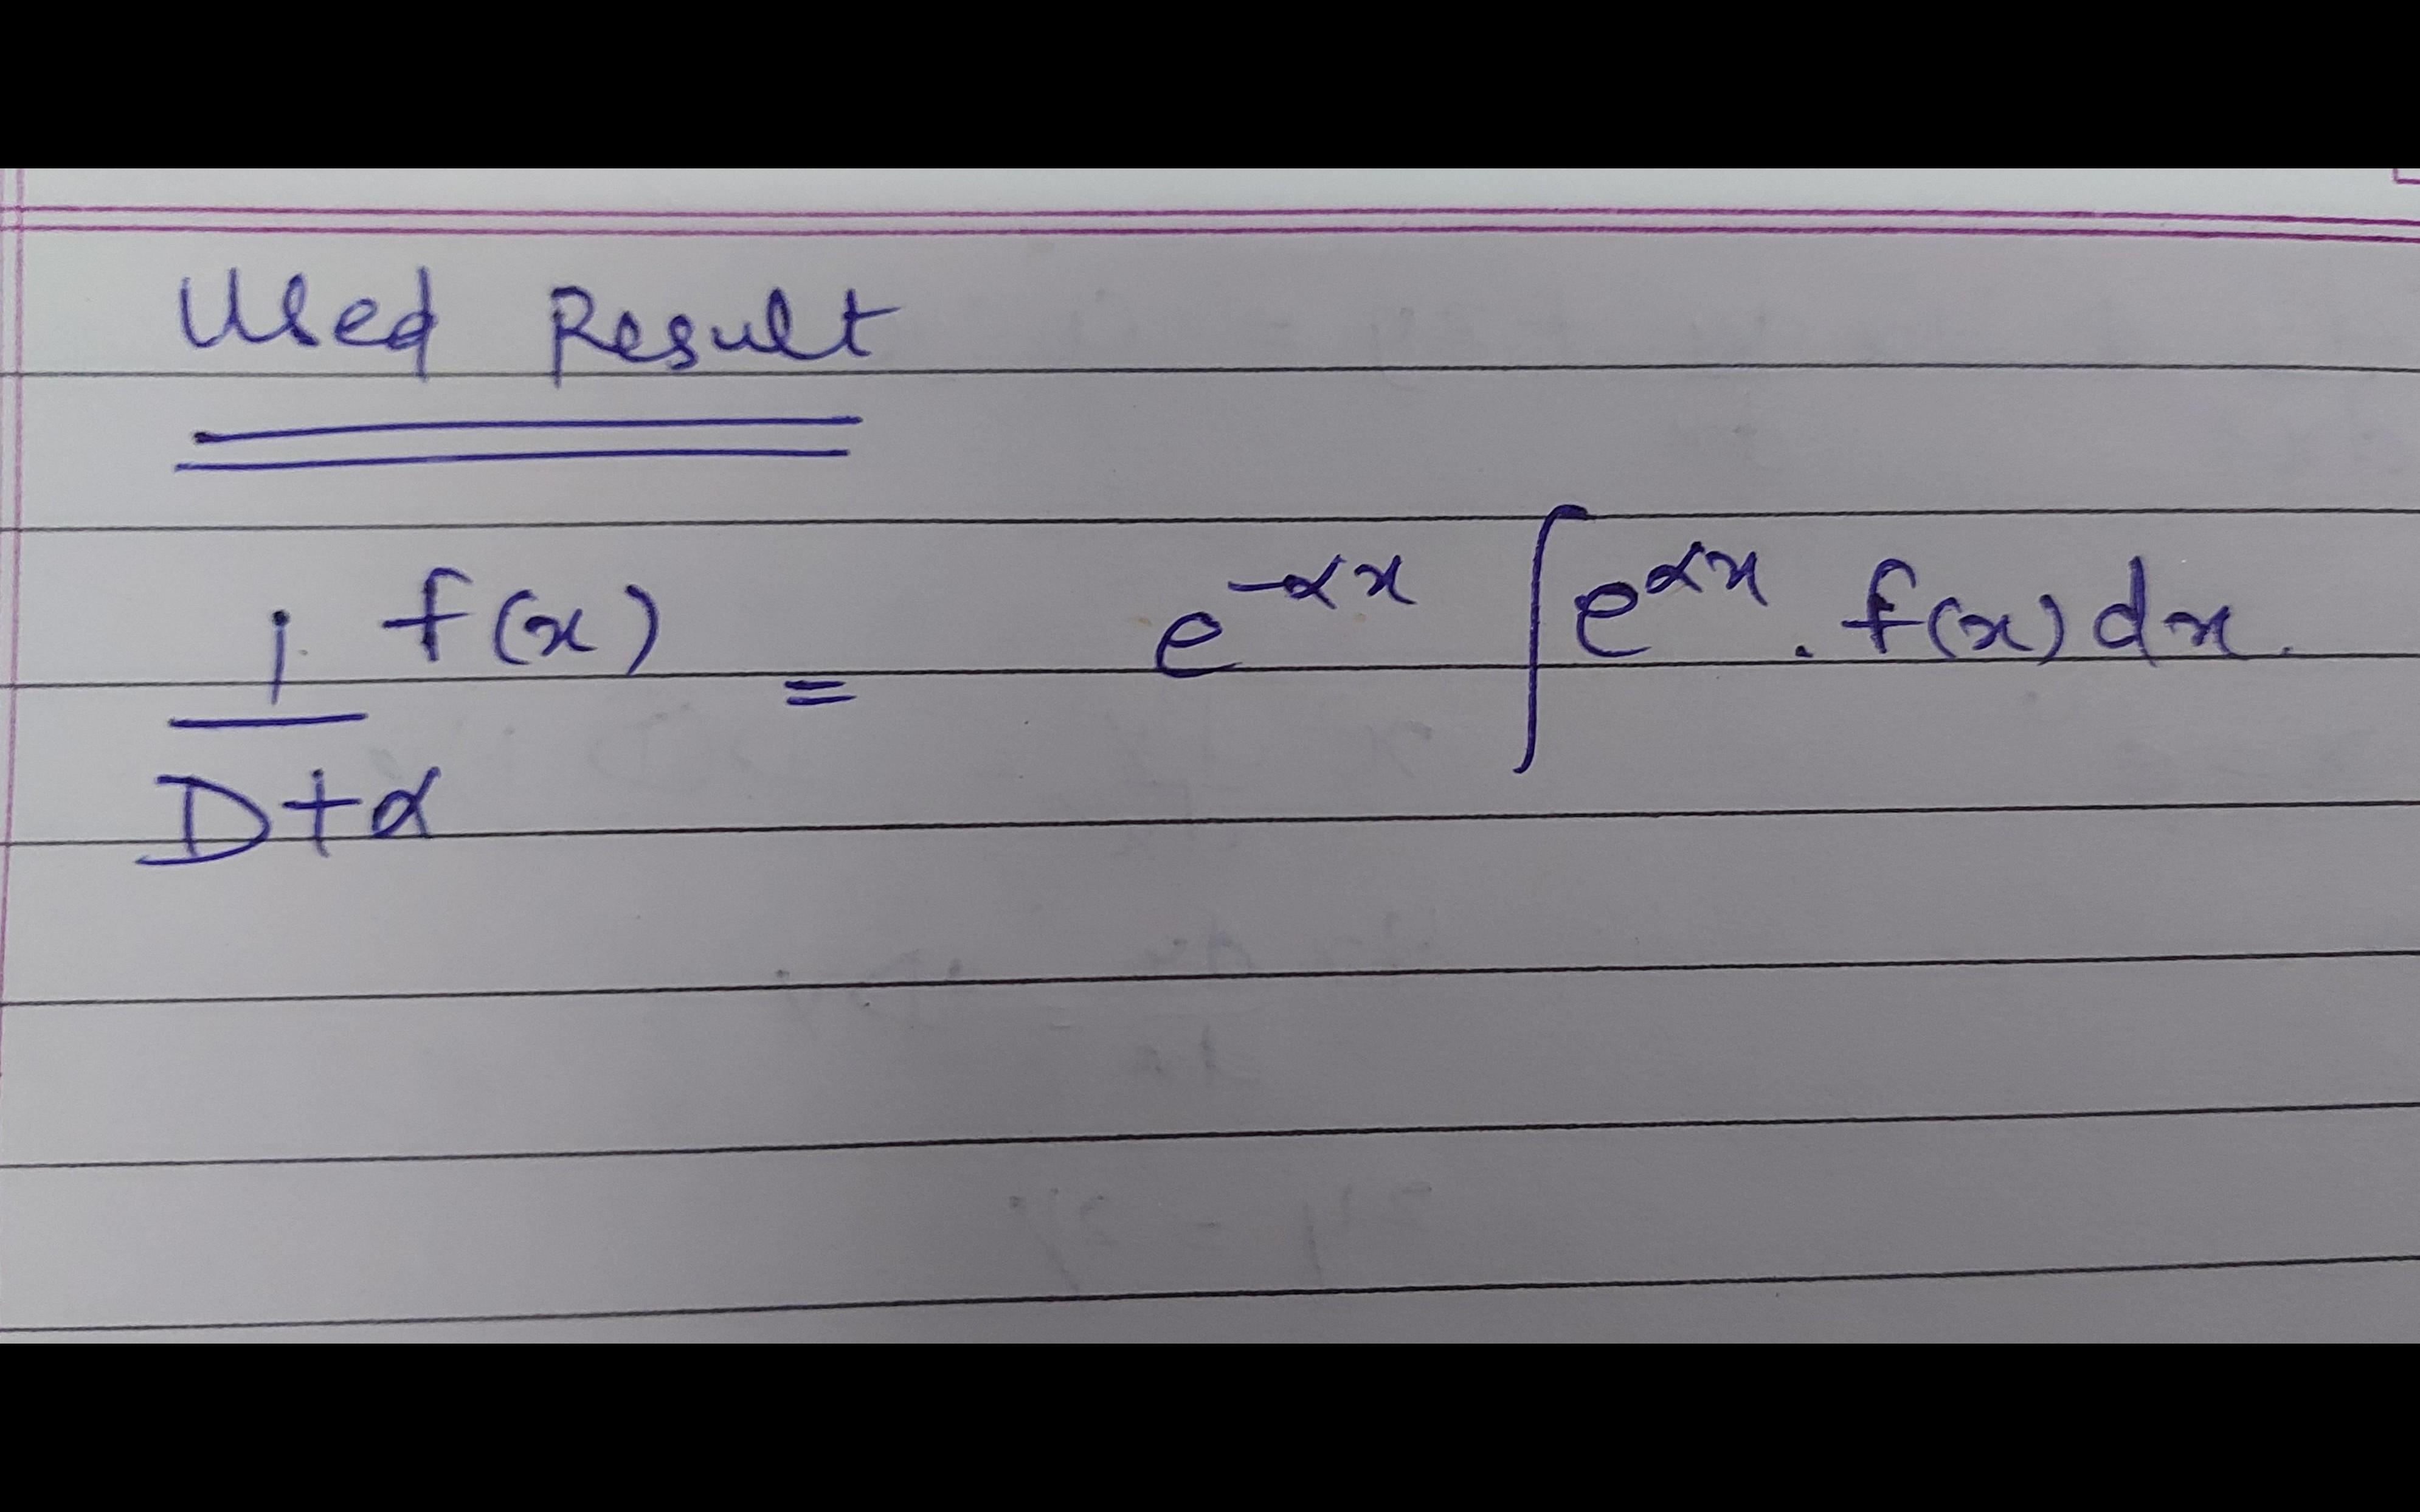 Used Result
1/(D+α) f(x) = e^{-αx} ∫ e^{αx} . f(x) dx.